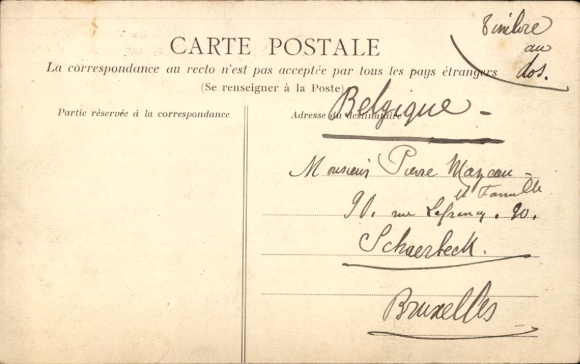 Timbre
au
dos.
CARTE POSTALE
La correspondance au recto n'est pas acceptée par tous les pays étrangers
(Se renseigner à la Poste)
Partie réservée à la correspondance
Adresse du destinataire
Belgique -
Monsieur Pierre
et Famille
90. rue Lefrancq. 90.
Schaerbeck.
Bruxelles